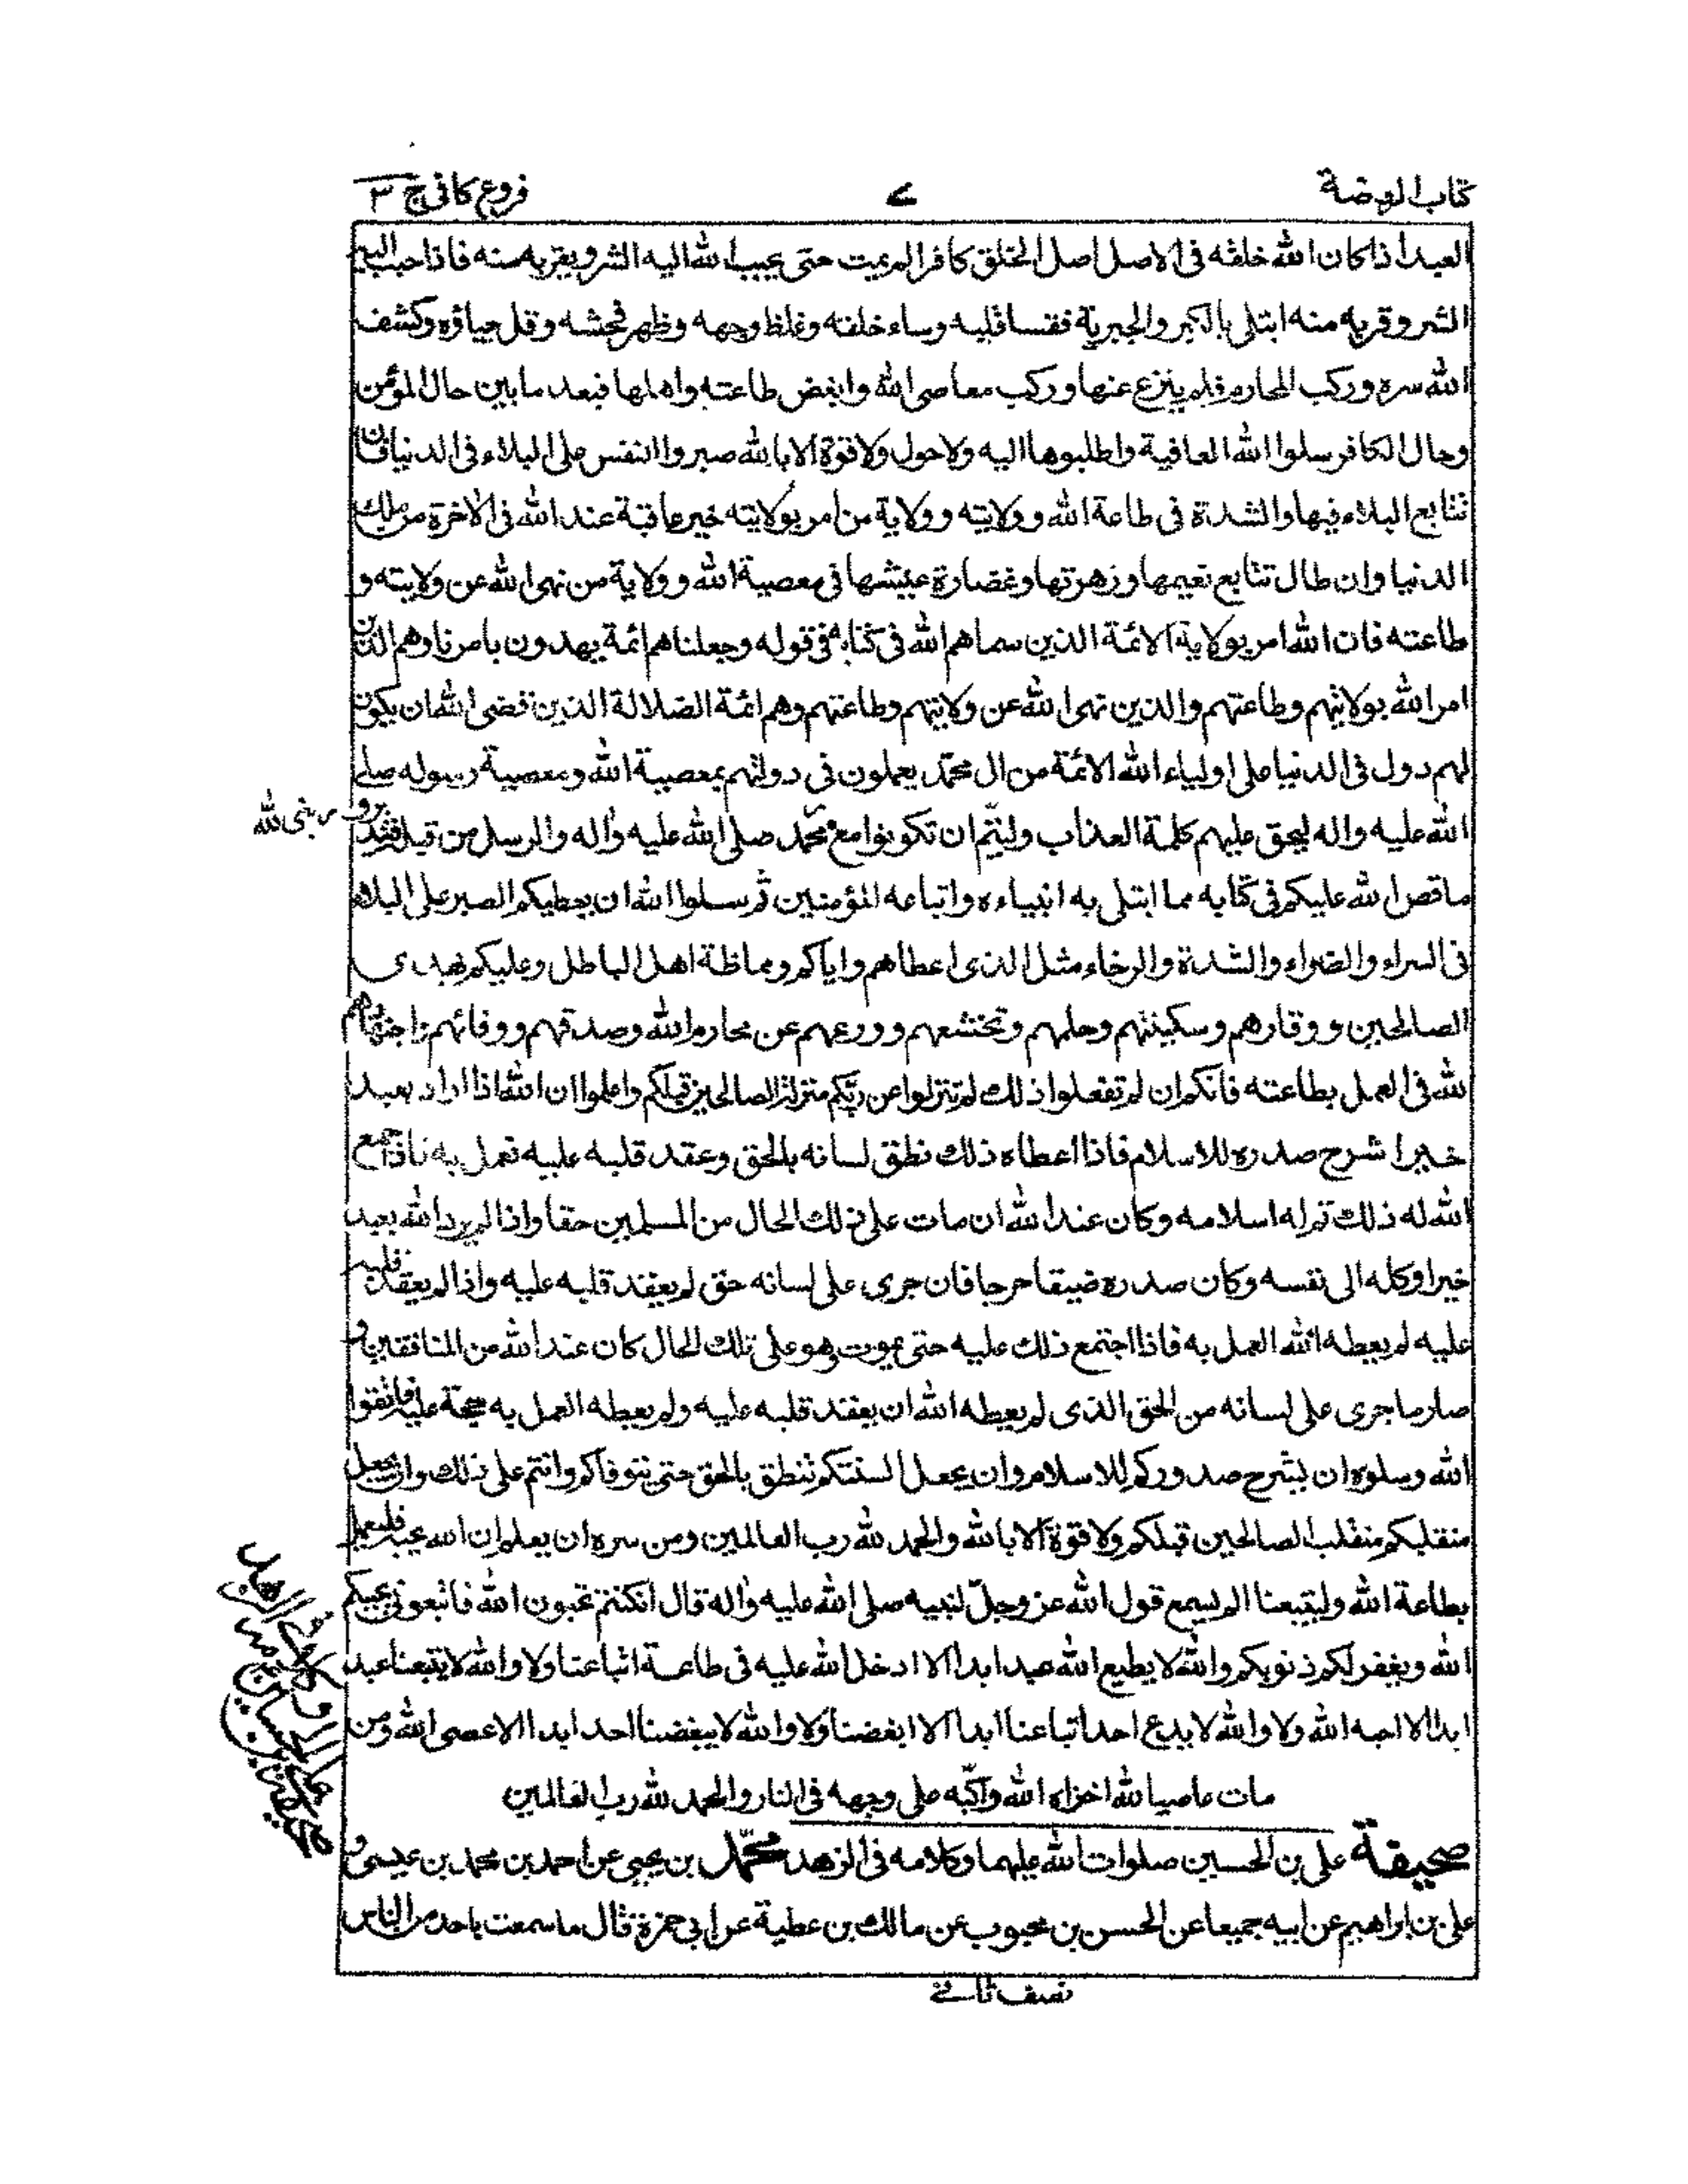 كتاب الروضة
٧
فروع كافى ج ٣
العبد اذا كان الله خلقه فى الاصل اصل الخلق كافرا لم يمت حتى يحبب الله اليه الشر ويقربه منه فاذا حبب اليه
الشر وقربه منه ابتلى بالكبر والجبرية فقسا قلبه وساء خلقه وغلظ وجهه وظهر فحشه وقل حياؤه وكشف
الله سره وركب المحارم فلم ينزع عنها وركب معاصى الله وابغض طاعته واهلها فبعد ما بين حال المؤمن
وحال الكافر سلوا الله العافية واطلبوها اليه ولا حول ولا قوة الا بالله صبروا النفس على البلاء فى الدنيا فان
تتابع البلاء فيها والشدة فى طاعة الله وولايته وولاية من امر بولايته خير عاقبة عند الله فى الاخرة من ملك
الدنيا وان طال تتابع نعيمها وزهرتها وغضارة عيشها فى معصية الله وولاية من نهى الله عن ولايته و
طاعته فان الله امر بولاية الائمة الذين سماهم الله فى كتابه فى قوله وجعلناهم ائمة يهدون بامرنا وهم الذين
امر الله بولايتهم وطاعتهم والذين نهى الله عن ولايتهم وطاعتهم وهم ائمة الضلالة الذين قضى الله ان يكون
لهم دول فى الدنيا على اولياء الله الائمة من ال محمد يعملون فى دولتهم بمعصية الله ومعصية رسوله صلى
الله عليه واله ليحق عليهم كلمة العذاب وليتم ان تكونوا مع محمد صلى الله عليه واله والرسل من قبله فتدبروا
ما قص الله عليكم فى كتابه مما ابتلى به انبياءه واتباعه المؤمنين ثم سلوا الله ان يعطيكم الصبر على البلاء
فى السراء والضراء والشدة والرخاء مثل الذى اعطاهم واياكم ومماظة اهل الباطل وعليكم بهدى
الصالحين ووقارهم وسكينتهم وحلمهم وتخشعهم وورعهم عن محارم الله وصدقهم ووفائهم واجتهادهم
لله فى العمل بطاعته فانكم ان لم تفعلوا ذلك لم تنزلوا عند ربكم منزلة الصالحين قبلكم واعلموا ان الله اذا اراد بعبد
خيرا شرح صدره للاسلام فاذا اعطاه ذلك نطق لسانه بالحق وعقد قلبه عليه فعمل به فاذا جمع
الله له ذلك تم له اسلامه وكان عند الله ان مات على ذلك الحال من المسلمين حقا واذا لم يرد الله بعبد
خيرا وكله الى نفسه وكان صدره ضيقا حرجا فان جرى على لسانه حق لم يعقد قلبه عليه واذا لم يعقد قلبه
عليه لم يعطه الله العمل به فاذا اجتمع ذلك عليه حتى يموت وهو على تلك الحال كان عند الله من المنافقين و
صار ما جرى على لسانه من الحق الذى لم يعطه الله ان يعقد قلبه عليه ولم يعطه العمل به حجة عليه فاتقوا
الله وسلوه ان يشرح صدوركم للاسلام وان يجعل السنتكم تنطق بالحق حتى يتوفاكم وانتم على ذلك وان يجعل
منقلبكم منقلب الصالحين قبلكم ولا قوة الا بالله والحمد لله رب العالمين ومن سره ان يعلم ان الله يحبه فليعمل
بطاعة الله وليتبعنا الم يسمع قول الله عز وجل لنبيه صلى الله عليه واله قال ان كنتم تحبون الله فاتبعونى يحببكم
الله ويغفر لكم ذنوبكم والله لا يطيع الله عبد ابدا الا ادخل الله عليه فى طاعة اتباعنا ولا والله لا يتبعنا عبد
ابدا الا احبه الله ولا والله لا يدع احد اتباعنا ابدا الا ابغضنا ولا والله لا يبغضنا احد ابدا الا عصى الله ومن
مات عاصيا لله اخزاه الله واكبه على وجهه فى النار والحمد لله رب العالمين
صحيفة على بن الحسين صلوات الله عليهما وكلامه فى الزهد محمد بن يحيى عن احمد بن محمد بن عيسى و
على بن ابراهيم عن ابيه جميعا عن الحسن بن محبوب عن مالك بن عطية عن ابى حمزة قال ما سمعت باحد من الناس
نصف ثانى